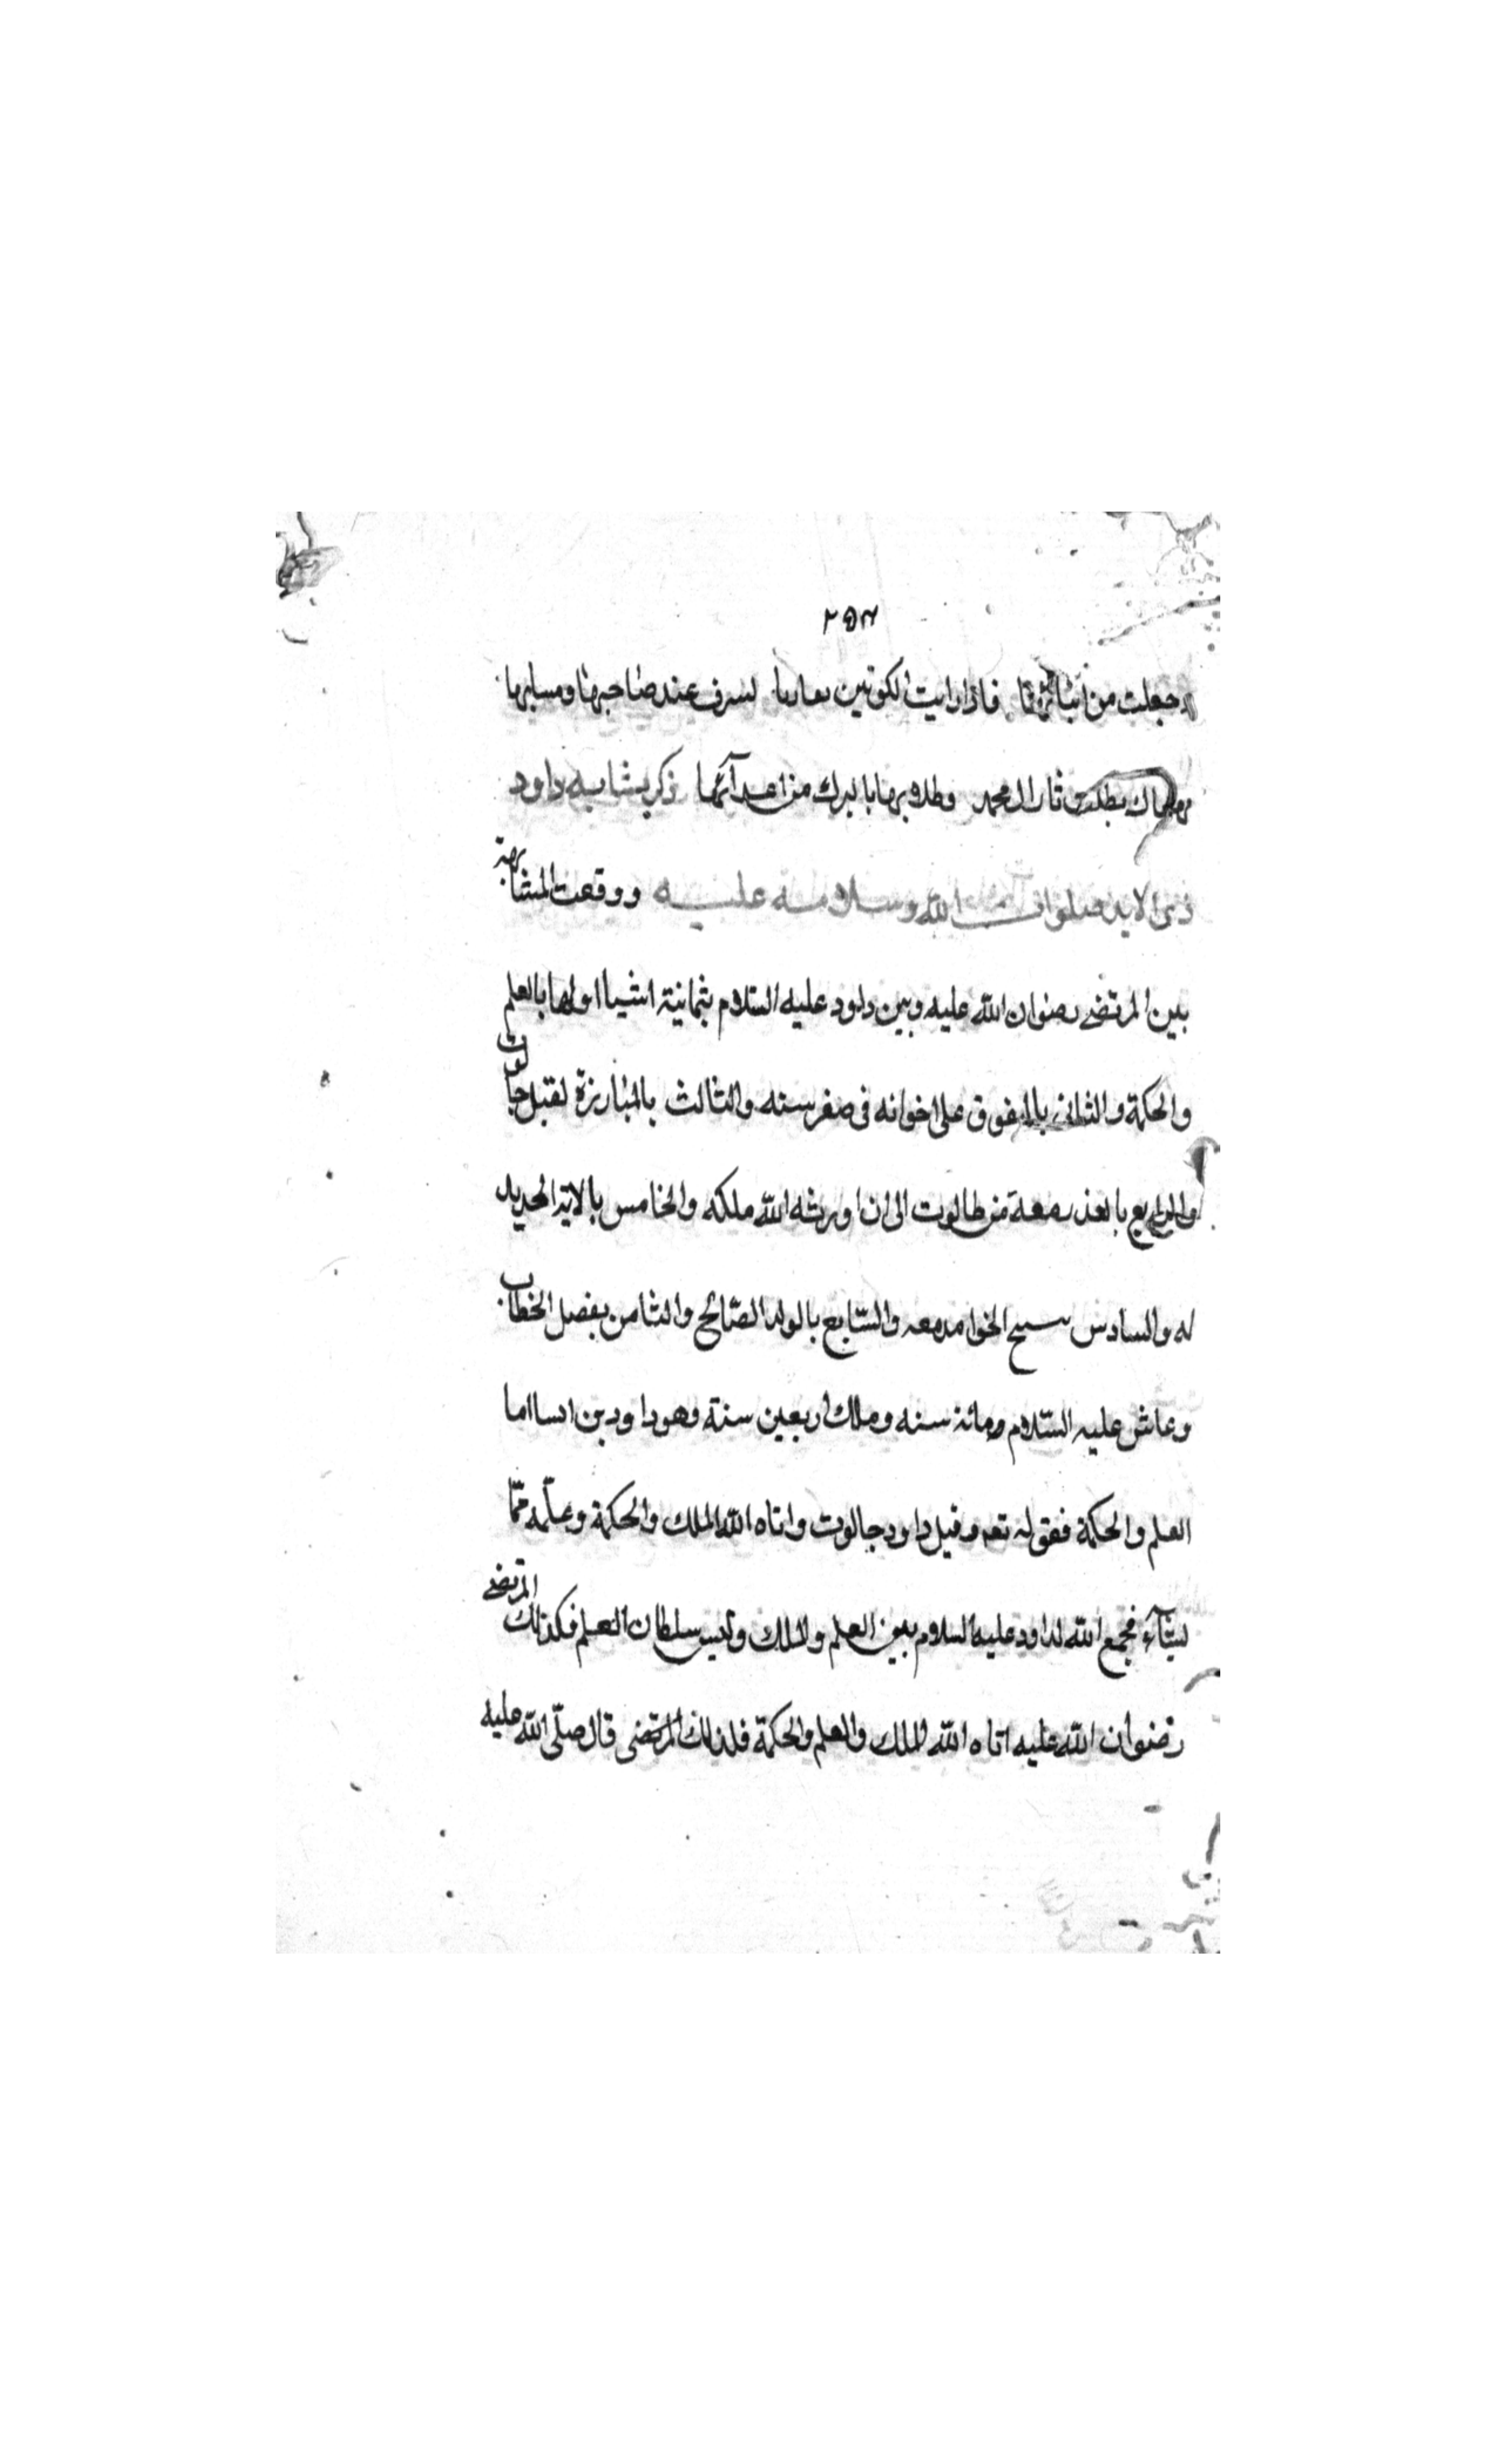 ٢٥٣
جعلت من فاذا رايت الكوتين لسرف عند صاحبها
ثار ال محمد وطلا بها بالبرك من اعدآئها ذكر مشابه داود
ذى الايد صلوات الله وسلامه عليه ووقعت المشابهة
بين المرتضى رضوان الله عليه وبين داود عليه السلام بثمانية اشيا اولها بالعلم
والحكمة والثانى بالتفوق على اخوانه فى صغر سنه والثالث بالمبارزة لقتل جالوت
والرابع معه من طالوت الى ان اورثه الله ملكه والخامس بالانة الحديد
له والسادس والسابع بالولد الصالح والثامن بفصل الخطاب
وعاش عليه السلام ومائة سنه وملك اربعين سنة وهو داود بن ايسا اما
العلم والحكمة فقوله تعالى وقتل داود جالوت واتاه الله الملك والحكمة وعلمه ممّا
يشآء فجمع الله لداود عليه السلام بين العلم والملك سلطان العلم فكذلك المرتضى
رضوان الله عليه اتاه الله الملك والعلم والحكمة فلذلك المرتضى قال صلّى الله عليه